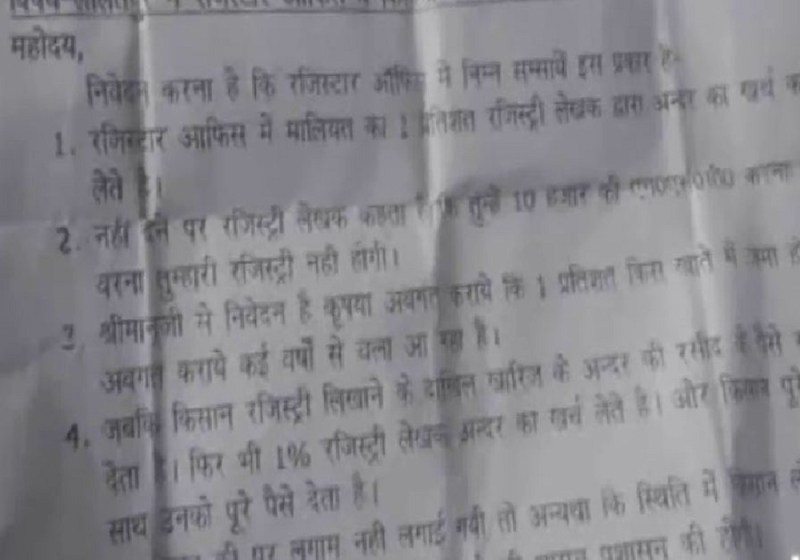 महोदय,
निवेदन करना है कि रजिस्टार ऑफिस में निम्न सम्सायें इस प्रकार है-
1. रजिस्टार आफिस में मालियत का 1 प्रतिशत रजिस्ट्री लेखक द्वारा अन्दर का खर्च
लेते है।
2. नही देने पर रजिस्ट्री लेखक कहता है कि तुम्हे 10 हजार की करना
वरना तुम्हारी रजिस्ट्री नही होंगी।
3. श्रीमानजी से निवेदन है कृपया अवगत कराये कि 1 प्रतिशत किस खाते में जमा
अवगत कराये कई वर्षों से चला आ रहा है।
4. जबकि किसान रजिस्ट्री लिखाने के दाखिल खारिज के अन्दर की रसीद के पैसे
देता है। फिर भी 1% रजिस्ट्री लेखक अन्दर का खर्च लेते है। और किसान पूरे
साथ उनको पूरे पैसे देता है।
पर लगाम नही लगाई गयी तो अन्यथा कि स्थिति में किसान
प्रशासन की होगी।